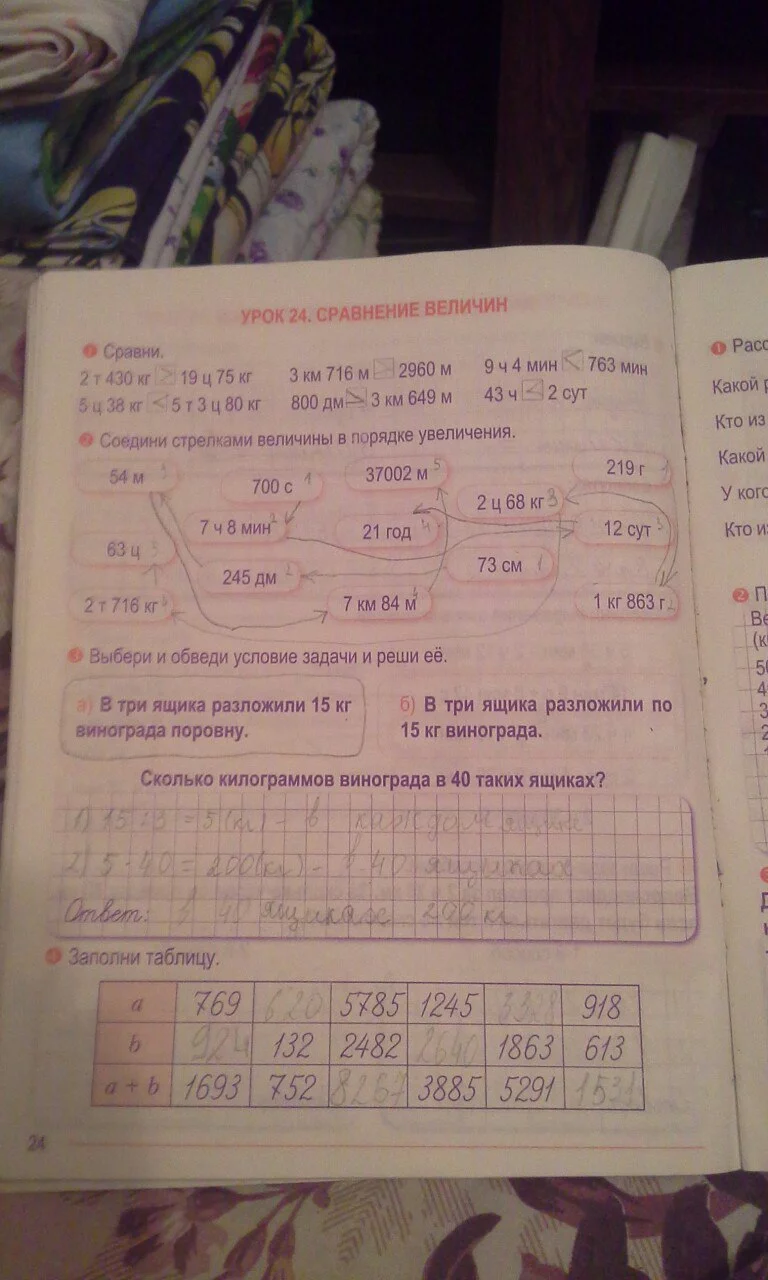 УРОК 24. СРАВНЕНИЕ ВЕЛИЧИН
1 Сравни.
2 т 430 кг > 19 ц 75 кг 3 км 716 м > 2960 м 9 ч 4 мин < 763 мин
5 ц 38 кг < 5 т 3 ц 80 кг 800 дм 3 км 649 м 43 ч < 2 сут
2 Соедини стрелками величины в порядке увеличения.
54 м 700 с 1 37002 м 5 219 г 1
7 ч 8 мин 2 21 год 4 2 ц 68 кг 3 12 сут 3
63 ц 245 дм 2 73 см 1
2 т 716 кг 7 км 84 м 4 1 кг 863 г 2
3 Выбери и обведи условие задачи и реши её.
а) В три ящика разложили 15 кг
винограда поровну.
б) В три ящика разложили по
15 кг винограда.
Сколько килограммов винограда в 40 таких ящиках?
1) 15 : 3 = 5 (кг) - в каждом
2) 5 · 40 = 200 (кг) - в 40 ящиках
Ответ: в 40 ящиках 200 кг
4 Заполни таблицу.
a 769 620 5785 1245 918
b 924 132 2482 2640 1863 613
a + b 1693 752 8267 3885 5291 1531
24
1 Расс
Какой р
Кто из
Какой
У кого
Кто из
2 П
Ве
(к
50
4
3
2
3